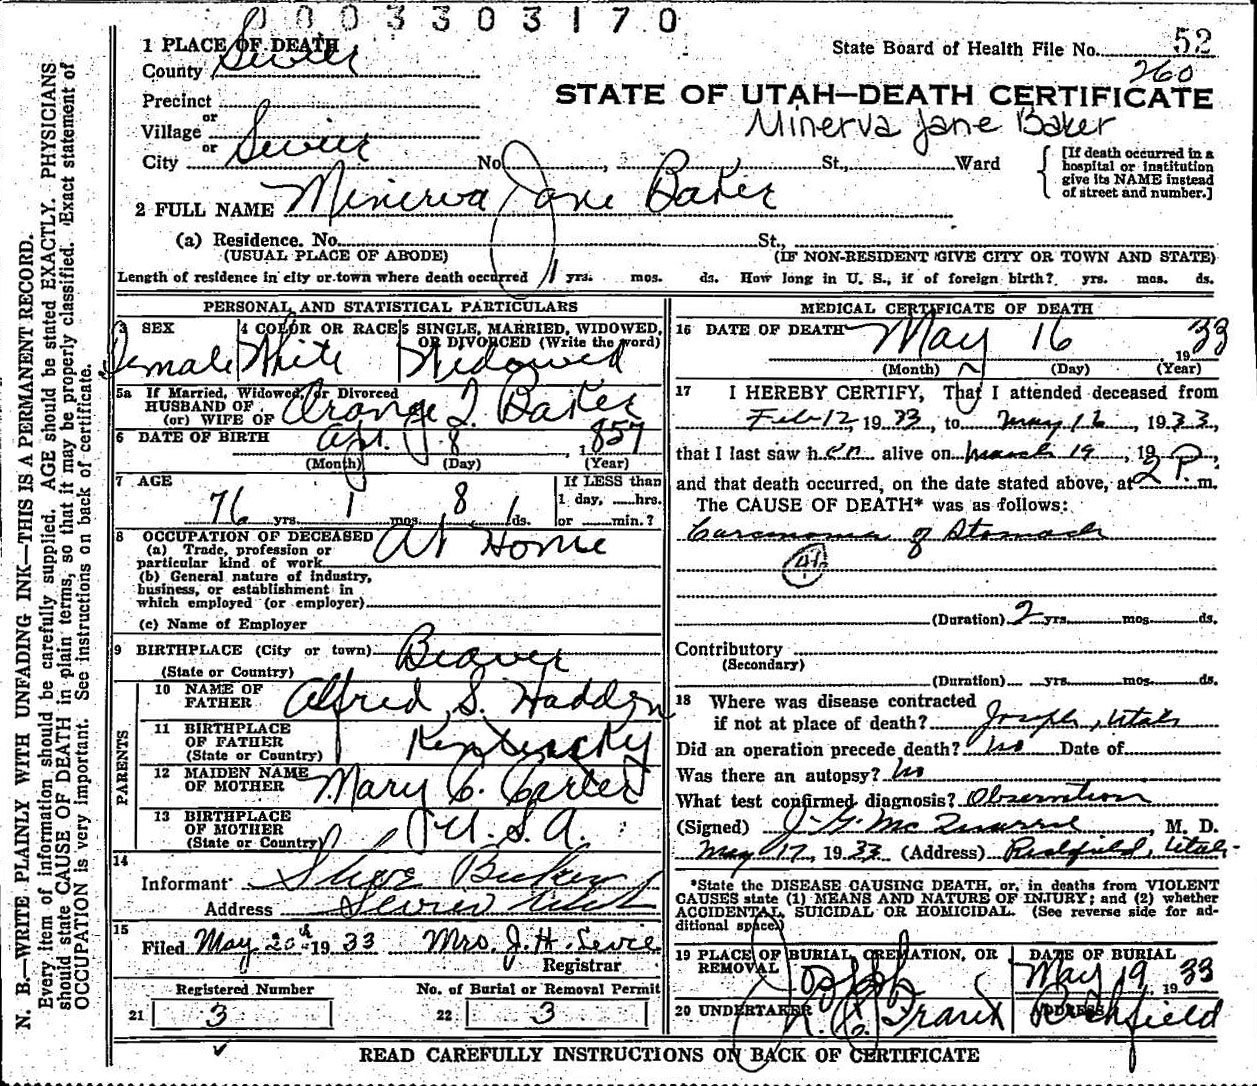 0003303170
1 PLACE OF DEATH
County Sevier
State Board of Health File No. 52
260
Precinct
or
Village
or
City Sevier No. , St., Ward
STATE OF UTAH—DEATH CERTIFICATE
Minerva Jane Baker
[If death occurred in a
hospital or institution
give its NAME instead
of street and number.]
2 FULL NAME Minerva Jane Baker
(a) Residence. No. St.,
(USUAL PLACE OF ABODE) (IF NON-RESIDENT GIVE CITY OR TOWN AND STATE)
Length of residence in city or town where death occurred 1 yrs. mos. ds. How long in U. S., if of foreign birth? yrs. mos. ds.
PERSONAL AND STATISTICAL PARTICULARS
3 SEX Female
4 COLOR OR RACE White
5 SINGLE, MARRIED, WIDOWED,
OR DIVORCED (Write the word) Widowed
5a If Married, Widowed, or Divorced
HUSBAND OF
(or) WIFE OF Orange Baker
6 DATE OF BIRTH Apr. 8, 1857
(Month) (Day) (Year)
7 AGE
76 yrs. 1 mos. 8 ds.
If LESS than
1 day, hrs.
or min.?
8 OCCUPATION OF DECEASED At Home
(a) Trade, profession or
particular kind of work
(b) General nature of industry,
business, or establishment in
which employed (or employer)
(c) Name of Employer
9 BIRTHPLACE (City or town) Beaver
(State or Country)
PARENTS
10 NAME OF
FATHER Alfred S. Hadden
11 BIRTHPLACE
OF FATHER
(State or Country) Kentucky
12 MAIDEN NAME
OF MOTHER Mary C. Carter
13 BIRTHPLACE
OF MOTHER
(State or Country) U. S. A.
14
Informant
Address Sevier Utah
15
Filed May 20th 1933 Mrs. J. H. Levie
Registrar
Registered Number No. of Burial or Removal Permit
21 3 22 3
MEDICAL CERTIFICATE OF DEATH
16 DATE OF DEATH May 16 1933
(Month) (Day) (Year)
17 I HEREBY CERTIFY, That I attended deceased from
Feb 12, 1933, to May 16, 1933,
that I last saw her alive on March 19, 19 ,
and that death occurred, on the date stated above, at 2 P. m.
The CAUSE OF DEATH* was as follows:
Carcinoma of Stomach
(Duration) 2 yrs. mos. ds.
Contributory
(Secondary)
(Duration) yrs. mos. ds.
18 Where was disease contracted
if not at place of death? Joseph, Utah
Did an operation precede death? No Date of
Was there an autopsy? No
What test confirmed diagnosis? Observation
(Signed) J. G. McQuarrie, M. D.
May 17, 1933 (Address) Richfield, Utah
*State the DISEASE CAUSING DEATH, or, in deaths from VIOLENT
CAUSES state (1) MEANS AND NATURE OF INJURY; and (2) whether
ACCIDENTAL, SUICIDAL OR HOMICIDAL. (See reverse side for ad-
ditional space.)
19 PLACE OF BURIAL, CREMATION, OR
REMOVAL Joseph
DATE OF BURIAL
May 19, 1933
20 UNDERTAKER
ADDRESS Richfield
READ CAREFULLY INSTRUCTIONS ON BACK OF CERTIFICATE
N. B.—WRITE PLAINLY WITH UNFADING INK—THIS IS A PERMANENT RECORD.
Every item of information should be carefully supplied. AGE should be stated EXACTLY. PHYSICIANS
should state CAUSE OF DEATH in plain terms, so that it may be properly classified. Exact statement of
OCCUPATION is very important. See instructions on back of certificate.